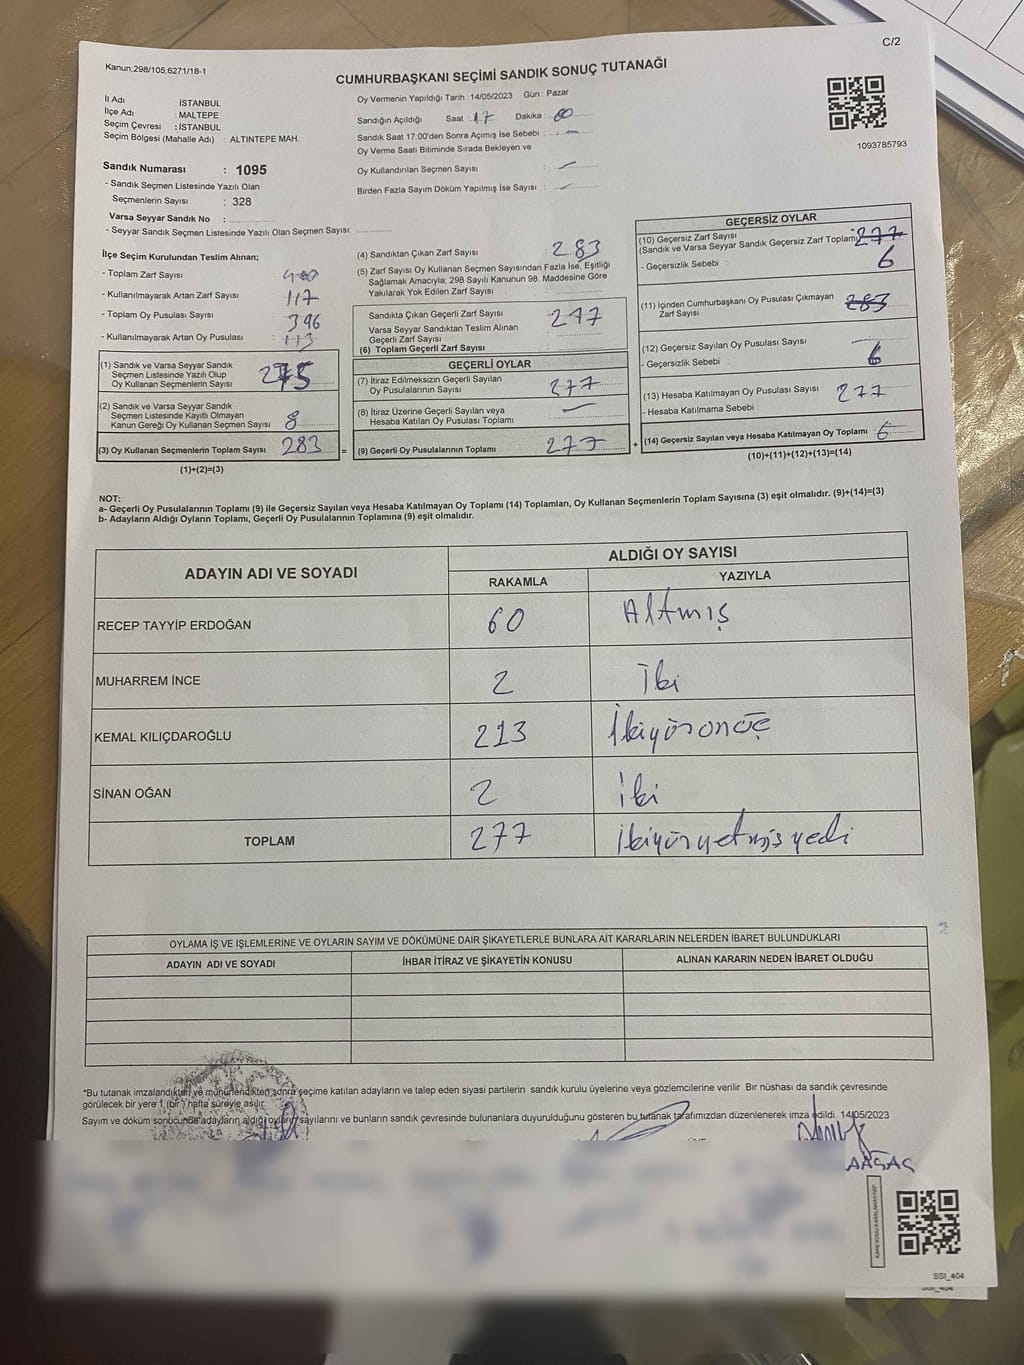 C/2
Kanun;298/105;6271/18-1
CUMHURBAŞKANI SEÇİMİ SANDIK SONUÇ TUTANAĞI
1093785793
İl Adı : İSTANBUL
İlçe Adı : MALTEPE
Seçim Çevresi : İSTANBUL
Seçim Bölgesi (Mahalle Adı) : ALTINTEPE MAH.
Sandık Numarası : 1095
- Sandık Seçmen Listesinde Yazılı Olan
Seçmenlerin Sayısı : 328
Varsa Seyyar Sandık No :
- Seyyar Sandık Seçmen Listesinde Yazılı Olan Seçmen Sayısı:
Oy Vermenin Yapıldığı Tarih : 14/05/2023 Gün : Pazar
Sandığın Açıldığı Saat : 17 Dakika : 00
Sandık Saat 17:00'den Sonra Açımış İse Sebebi :
Oy Verme Saati Bitiminde Sırada Bekleyen ve
Oy Kullandırılan Seçmen Sayısı :
Birden Fazla Sayım Döküm Yapılmış İse Sayısı :
İlçe Seçim Kurulundan Teslim Alınan;
- Toplam Zarf Sayısı : 400
- Kullanılmayarak Artan Zarf Sayısı : 117
- Toplam Oy Pusulası Sayısı : 396
- Kullanılmayarak Artan Oy Pusulası : 113
(1) Sandık ve Varsa Seyyar Sandık
Seçmen Listesinde Yazılı Olup
Oy Kullanan Seçmenlerin Sayısı 275
(2) Sandık ve Varsa Seyyar Sandık
Seçmen Listesinde Kayıtlı Olmayan
Kanun Gereği Oy Kullanan Seçmen Sayısı 8
(3) Oy Kullanan Seçmenlerin Toplam Sayısı 283
(1)+(2)=(3)
(4) Sandıktan Çıkan Zarf Sayısı : 283
(5) Zarf Sayısı Oy Kullanan Seçmen Sayısından Fazla İse, Eşitliği
Sağlamak Amacıyla; 298 Sayılı Kanunun 98. Maddesine Göre
Yakılarak Yok Edilen Zarf Sayısı :
Sandıkta Çıkan Geçerli Zarf Sayısı 277
Varsa Seyyar Sandıktan Teslim Alınan
Geçerli Zarf Sayısı :
(6) Toplam Geçerli Zarf Sayısı :
GEÇERLİ OYLAR
(7) İtiraz Edilmeksizin Geçerli Sayılan
Oy Pusulalarının Sayısı : 277
(8) İtiraz Üzerine Geçerli Sayılan veya
Hesaba Katılan Oy Pusulası Toplamı :
= (9) Geçerli Oy Pusulalarının Toplamı 277 +
GEÇERSİZ OYLAR
(10) Geçersiz Zarf Sayısı
(Sandık ve Varsa Seyyar Sandık Geçersiz Zarf Toplamı) 277
- Geçersizlik Sebebi : 6
(11) İçinden Cumhurbaşkanı Oy Pusulası Çıkmayan
Zarf Sayısı 283
(12) Geçersiz Sayılan Oy Pusulası Sayısı
- Geçersizlik Sebebi : 6
(13) Hesaba Katılmayan Oy Pusulası Sayısı 277
- Hesaba Katılmama Sebebi :
(14) Geçersiz Sayılan veya Hesaba Katılmayan Oy Toplamı 6
(10)+(11)+(12)+(13)=(14)
NOT:
a- Geçerli Oy Pusulalarının Toplamı (9) ile Geçersiz Sayılan veya Hesaba Katılmayan Oy Toplamı (14) Toplamları, Oy Kullanan Seçmenlerin Toplam Sayısına (3) eşit olmalıdır. (9)+(14)=(3)
b- Adayların Aldığı Oyların Toplamı, Geçerli Oy Pusulalarının Toplamına (9) eşit olmalıdır.
ADAYIN ADI VE SOYADI ALDIĞI OY SAYISI
RAKAMLA YAZIYLA
RECEP TAYYİP ERDOĞAN 60 Altmış
MUHARREM İNCE 2 İki
KEMAL KILIÇDAROĞLU 213 İkiyüzonüç
SİNAN OĞAN 2 İki
TOPLAM 277 İkiyüzyetmişyedi
OYLAMA İŞ VE İŞLEMLERİNE VE OYLARIN SAYIM VE DÖKÜMÜNE DAİR ŞİKAYETLERLE BUNLARA AİT KARARLARIN NELERDEN İBARET BULUNDUKLARI
ADAYIN ADI VE SOYADI İHBAR İTİRAZ VE ŞİKAYETİN KONUSU ALINAN KARARIN NEDEN İBARET OLDUĞU
*Bu tutanak imzalandıkten ve mühürlendikten sonra seçime katılan adayların ve talep eden siyasi partilerin sandık kurulu üyelerine veya gözlemcilerine verilir. Bir nüshası da sandık çevresinde
görülecek bir yere 1 (bir ) hafta süreyle asılır.
Sayım ve döküm sonucunda adayların aldığı oyların sayılarını ve bunların sandık çevresinde bulunanlara duyurulduğunu gösteren bu tutanak tarafımızdan düzenlenerek imza edildi. 14/05/2023
SSI_404